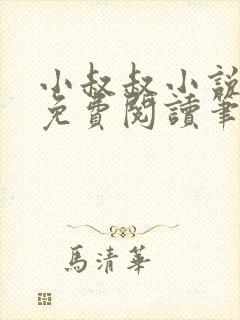 小叔叔小說
免費閱讀筆
馬清華